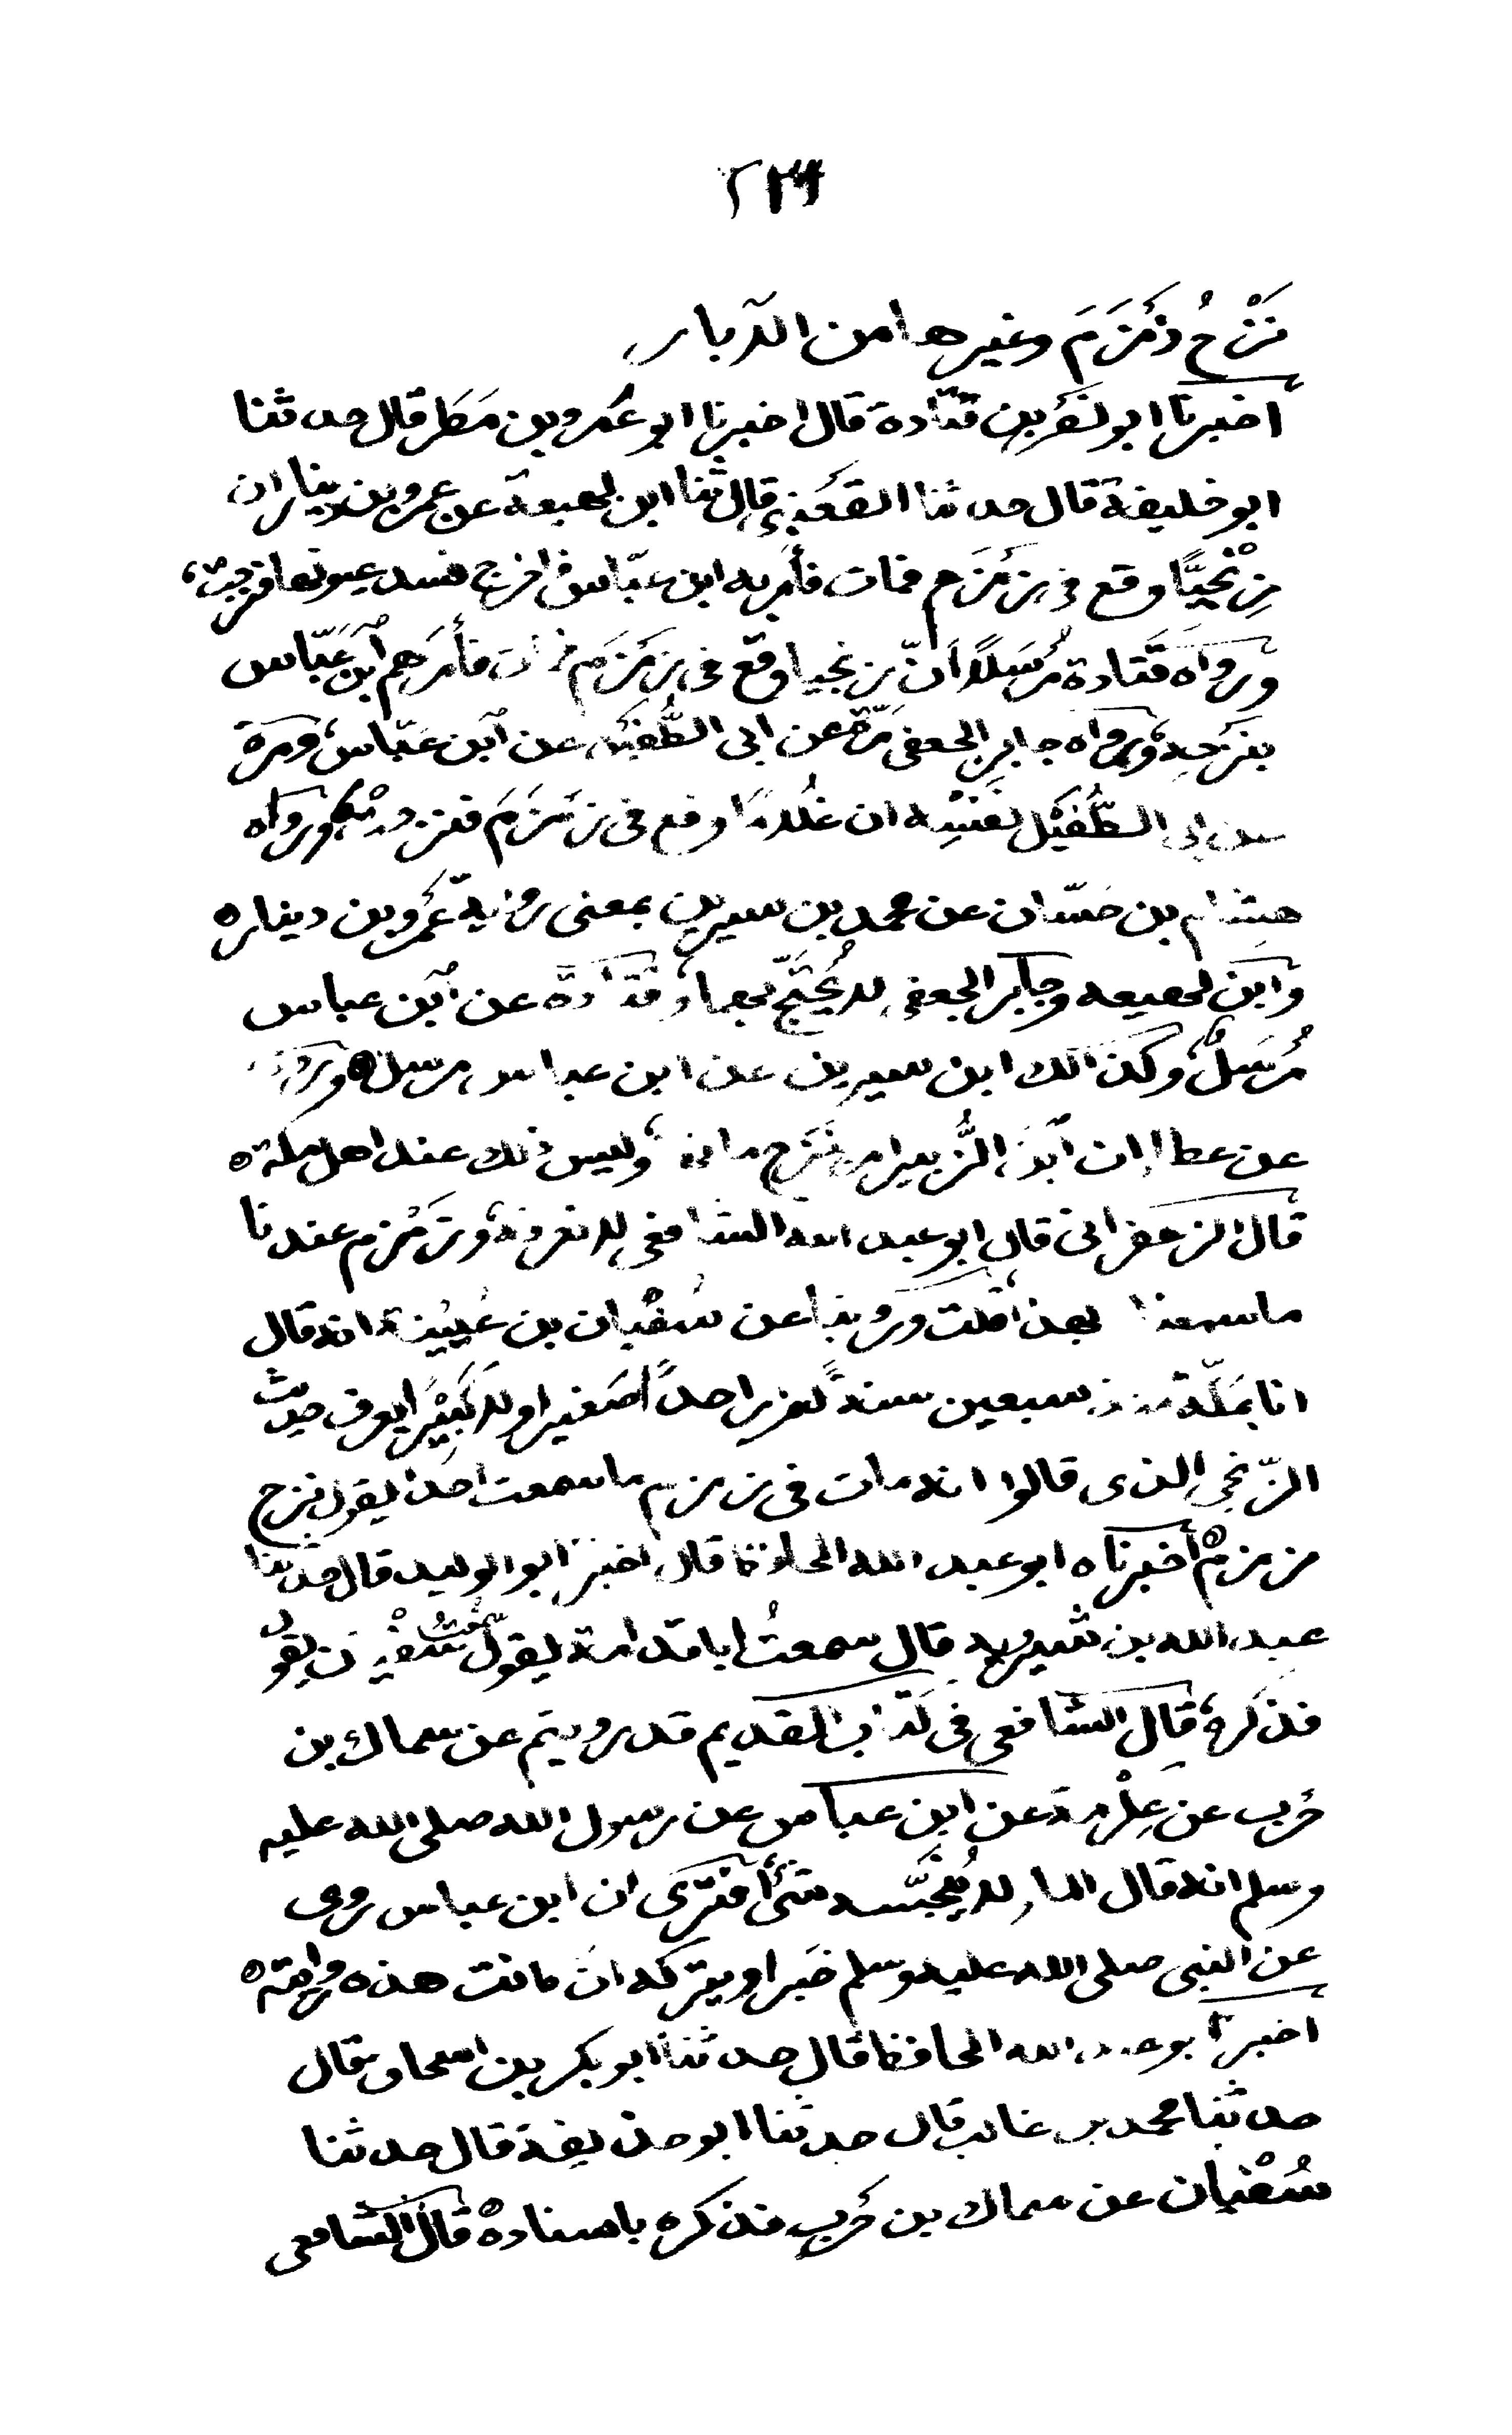 نَزْحُ زَمْزَمَ وغيرها من الآبار
اخبرنا ابو نصر بن قتادة قال اخبرنا ابو عمرو بن مَطَر قال حدثنا
ابو خليفة قال حدثنا القعنبي قال ثنا ابن لهيعة عن عمرو بن دينار ان
زِنْجِيًّا وقع في زَمْزَم فمات فأمر به ابن عبّاس فاخرج فسد عيونها ثم نزحت،
ورواه قَتَادة مُرسَلاً انّ زنجيا وقع في زَمْزَم فمات فأمرهم ابن عَبّاس
بنزحه، ورواه جابر الجعفي مَرَّة عن ابي الطُّفَيْل عن ابن عبّاس، ومرة
عن ابي الطُّفَيْل نَفْسِه ان غلاما وقع في زَمْزَمَ فنزحت، ورواه
هِشَام بن حَسّان عن محمد بن سيرين بمعنى رواية عَمْرو بن دينار ه
وابن لهيعه وجابر الجعفي لا يُحْتَجّ بهما، وقَتَادَة عن ابن عباس
مُرْسَلٌ، وكذلك ابن سيرين عن ابن عباس مرسل ه وروينا
عن عطا ان ابن الزُّبير امر بنَزْح مائه، وليس ذلك عند اهل مكة ه
قال الزعفراني قال ابو عبد الله الشافعي لا نعرفه، وزَمْزم عندنا
ما سمعنا بهذا، قلت وروينا عن سُفْيان بن عُيَيْنة انه قال
انا بمَكّة منذ سبعين سنةً لم ار احداً صَغيرا ولا كَبيْرَا يعرف حديث
الزّنجي الذي قالوا انه مات في زمزم ما سمعت احدا يقول نزح
زمزم ه أخبرناه ابو عبد الله الحافظ قال اخبرنا ابو الوليد قال حدثنا
عبد الله بن شيرويه قال سمعتُ ابا قدامة يقول سمعت سُفْيان يقول
فذكره، قال الشافعي في كتاب القديم قد رويتم عن سماك بن
حَرْب عن عِكْرمة عن ابن عباس عن رسول الله صلى الله عليه
وسلم انه قال الماء لا يُنجِّسه شئ أَفَتُرَى ان ابن عباس روى
عن النبي صلى الله عليه وسلم خَبَرا ويتركه ان كانت هذه روايته ه
اخبرنا ابو عبد الله الحافظ قال حدثنا ابو بكر بن اسحاق قال
حدثنا محمد بن غالب قال حدثنا ابو حذيفة قال حدثنا
سُفْيان عن سماك بن حَرْب فذكره باسناده ه قال الشافعي